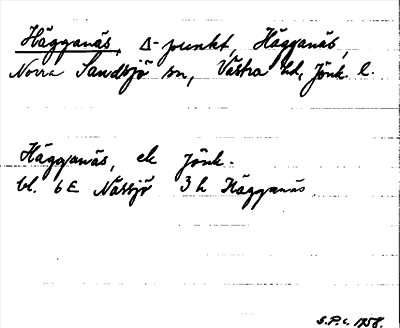 Hägganäs, Δ-punkt, Hägganäs,
Norra Sandsjö sn, Västra hd, Jönk. l.
Hägganäs, ek Jönk.
bl. 6E Nässjö 3 h Hägganäs
S.P.c. 1958.